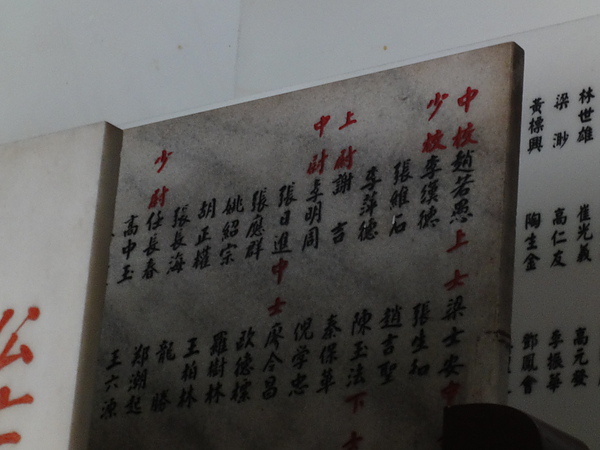 林世雄 崔光義 高元發
梁渺 高仁友 李振華
黃標興 陶生金 鄧鳳會
中校趙若愚上士梁士安中
少校李漢德 張生知
張維石 趙言聖
李萍德 陳玉法下士
上尉謝吉 秦保華
中尉卓明周 倪學忠
張日進中士廖令昌
張應群 歐德標
姚紹宗 羅樹林
胡正權 王柏林
張長海 龍勝
少尉任長春 鄭潮起
高中玉 王六源